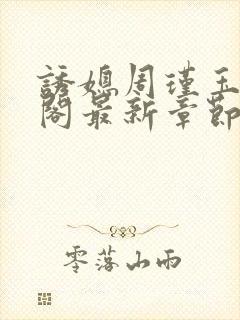 誘媳周瑾玉
閣最新章節
零落山雨